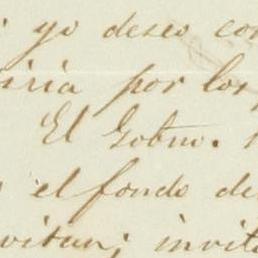 yo deseo con
iria por los
El Gobno.
el fondo de
vitan; invita